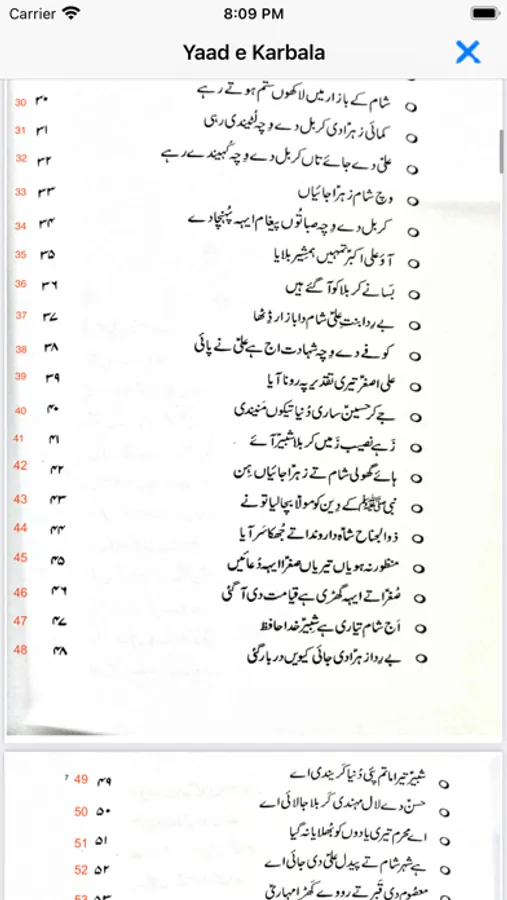 Carrier 8:09 PM
Yaad e Karbala
شام کے بازار میں لاکھوں ستم ہوتے رہے ۳۰ 30
کمائی زہراؑ دی کربل دے وِچہ لُٹیندی رہی ۳۱ 31
علیؑ دے جائے تاں کربل دے وِچہ کُہیندے رہے ۳۲ 32
وِچ شام زہراؑ جائیاں ۳۳ 33
کربل دے وِچہ صباتُوں پیغام ایہہ پُہنچا دے ۳۴ 34
آؤ علی اکبرؑ تمہیں ہمشیر بلایا ۳۵ 35
بَسانے کربلا کو آ گئے ہیں ۳۶ 36
بے رِدا بنتِ علیؑ شام دا بازار ڈِٹھا ۳۷ 37
کوفے دے وِچہ شہادت اج ہے علیؑ نے پائی ۳۸ 38
علی اصغرؑ تیری تقدیر پہ رونا آیا ۳۹ 39
جے کر حسینؑ ساری دُنیا تیکوں مَنیندی ۴۰ 40
زَہے نصیب زَمیں کربلا شبیرؑ آئے ۴۱ 41
ہائے گھولی شام تے زہراؑ جائیاں ہِن ۴۲ 42
نبی ﷺ کے دِین کو مولاؑ بچا لیا تو نے ۴۳ 43
ذوالجناح شاہؑ دا روندا تے جُھکا سَر آیا ۴۴ 44
منظور نہ ہویاں تیریاں صغراؑ ایہہ دُعائیں ۴۵ 45
صُغراؑ تے ایہہ گھڑی ہے قیامت دی آ گئی ۴۶ 46
اَج شام تیاری ہے شبیرؑ خدا حافظ ۴۷ 47
بے رِدا زہراؑ دی جائی کیویں دربار گئی ۴۸ 48
شبیرؑ تیرا ماتم پئی دُنیا کریندی اے ۴۹ 49 7
حسنؑ دے لال مہندی کربلا جا لائی اے ۵۰ 50
اے محرم تیری یادوں کو بُھلایا نہ گیا ۵۱ 51
ہے شہر شام تے پیدل علیؑ دی جائی اے ۵۲ 52
معصومؑ دی قبر تے رووے کھڑا مہاریؑ ۵۳ 53